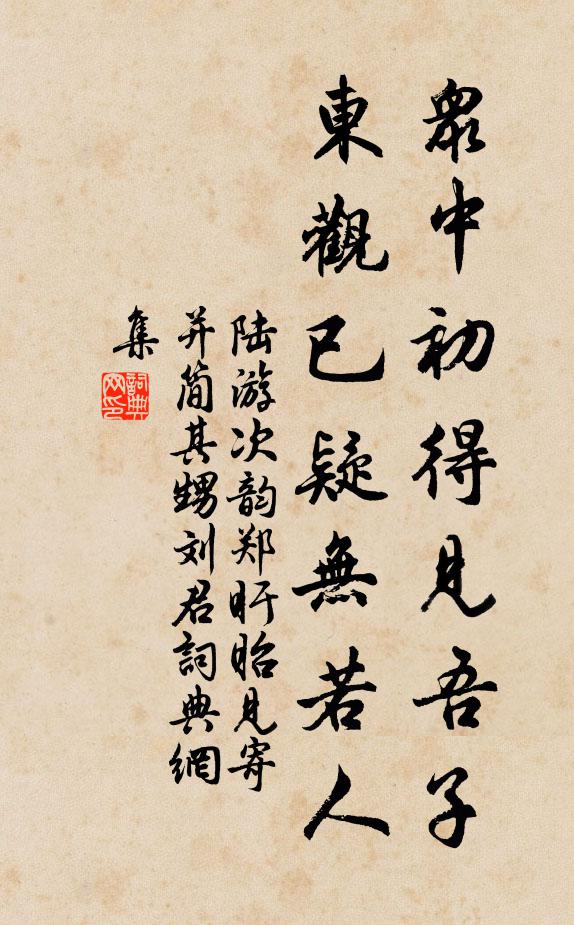 眾中初得見吾子
東觀已疑無若人
陆游次韵郑盱眙见寄
并简其甥刘君詞典網
集
詞典网印